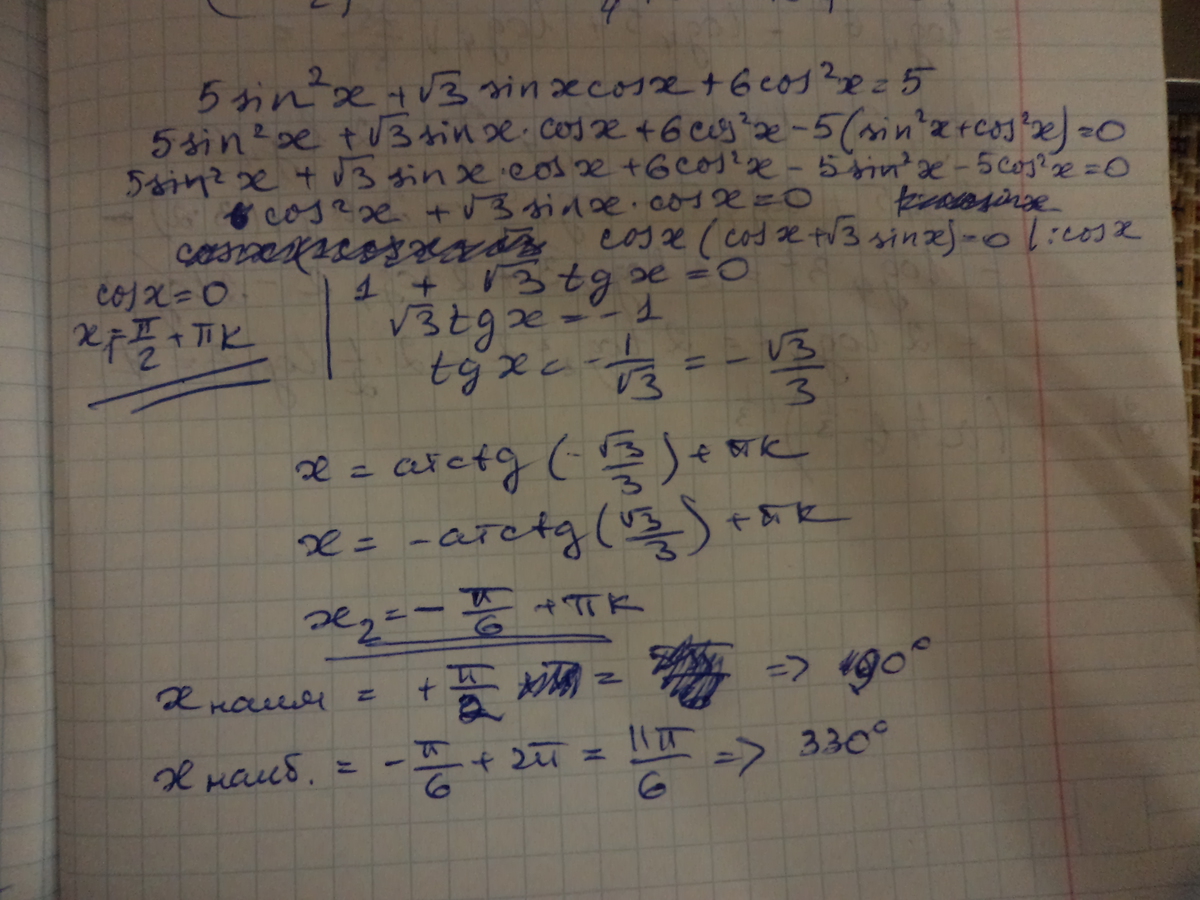 5sin²x + √3 sinxcosx + 6cos²x = 5
5sin²x + √3 sinx · cosx + 6cos²x - 5(sin²x + cos²x) = 0
5sin²x + √3 sinx · cosx + 6cos²x - 5sin²x - 5cos²x = 0
cos²x + √3 sinx · cosx = 0
cosx (cosx + √3 sinx) = 0 | : cosx
cosx = 0 | 1 + √3 tgx = 0
x₁ = π/2 + πk | √3 tgx = -1
tgx = -1/√3 = -√3/3
x = arctg (-√3/3) + πk
x = -arctg (√3/3) + πk
x₂ = -π/6 + πk
x наим = +π/2 = => 90°
x наиб. = -π/6 + 2π = 11π/6 => 330°